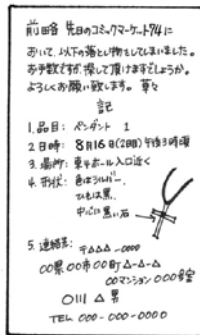 前略 先日のコミックマーケット74に
おいて、以下の落とし物をしてしまいました。
お手数ですが、探して頂けますでしょうか。
よろしくお願い致します。 草々
記
1. 品目： ペンダント 1
2. 日時： 8月16日(2日目) 午後3時頃
3. 場所： 東4ホール入口近く
4. 形状： 色はシルバー、
ひもは黒、
中心に黒い石
5. 連絡先： 〒△△△-0000
○○県○○市○○町△-△-△
○○マンション000号室
○川 △男
TEL 000-000-0000